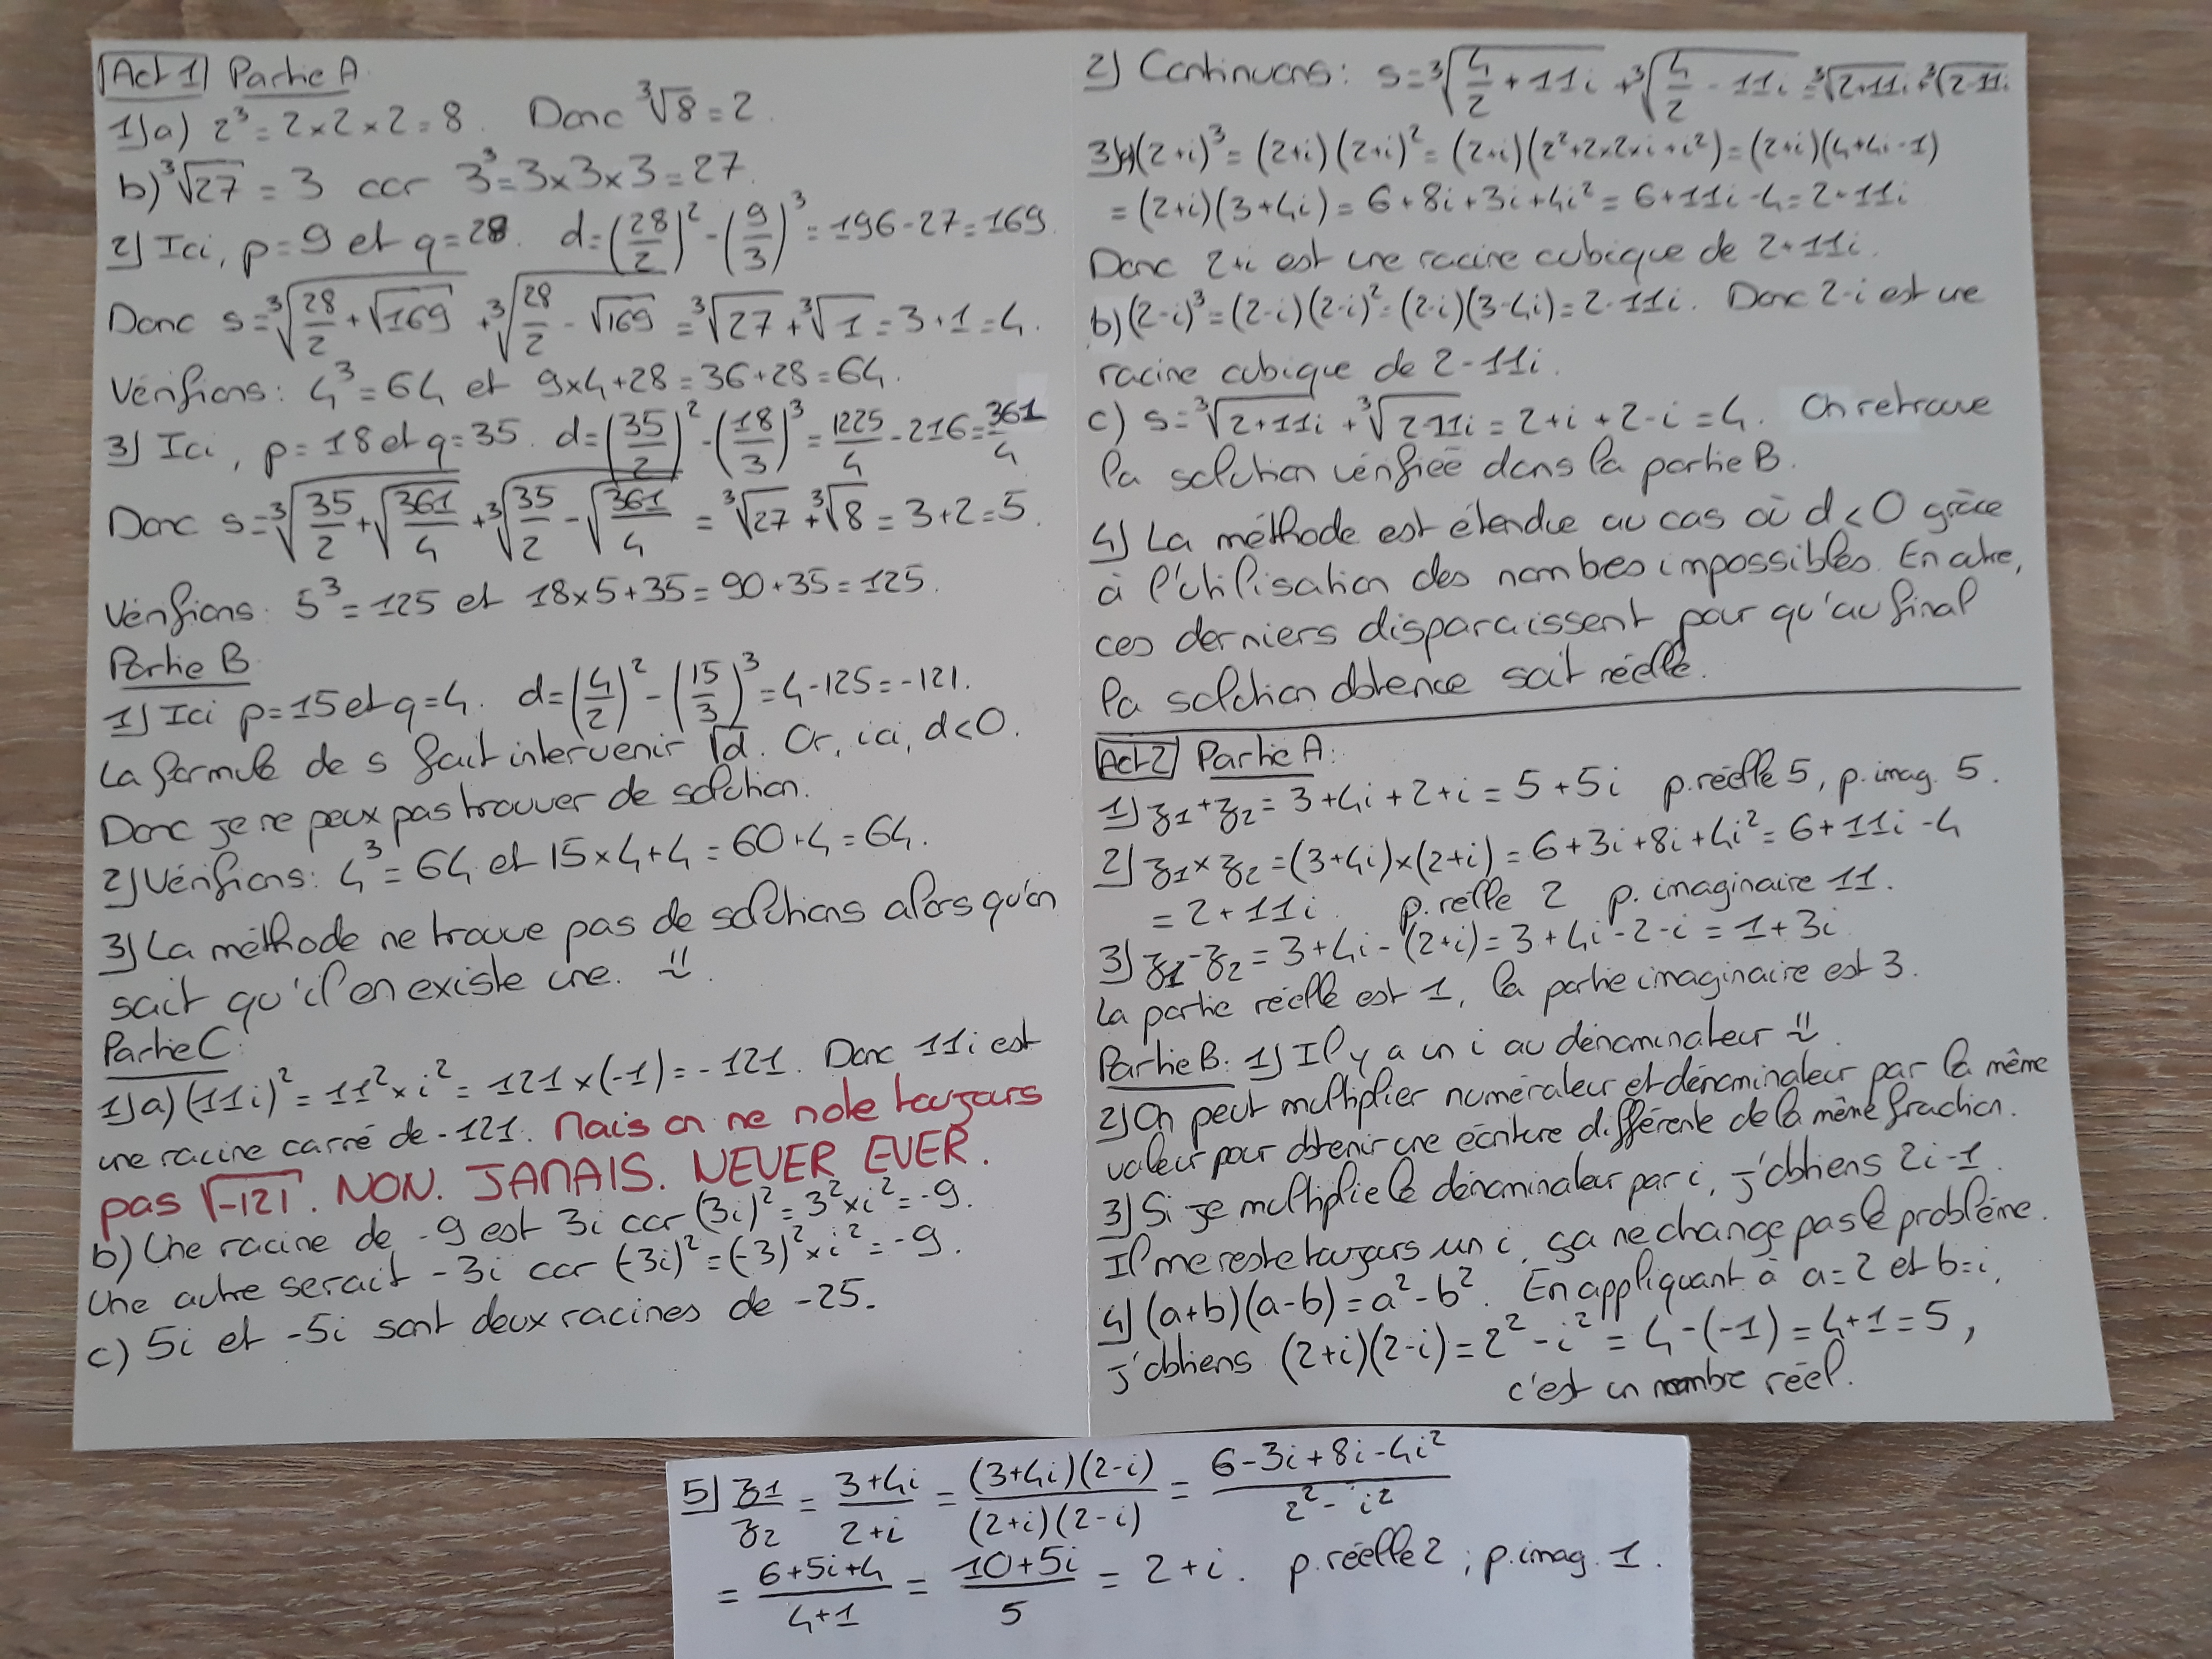 Act 1 Partie A
1) a) 2³ = 2×2×2 = 8. Donc ∛8 = 2.
b) ∛27 = 3 car 3³ = 3×3×3 = 27.
2) Ici, p = 9 et q = 28. d = (28/2)² - (9/3)³ = 196 - 27 = 169.
Donc s = ∛(28/2 + √169) + ∛(28/2 - √169) = ∛27 + ∛1 = 3 + 1 = 4.
Vérifions : 4³ = 64 et 9×4+28 = 36+28 = 64.
3) Ici, p = 18 et q = 35. d = (35/2)² - (18/3)³ = 1225/4 - 216 = 361/4
Donc s = ∛(35/2 + √(361/4)) + ∛(35/2 - √(361/4)) = ∛27 + ∛8 = 3+2 = 5.
Vérifions : 5³ = 125 et 18×5+35 = 90+35 = 125.
Partie B
1) Ici p = 15 et q = 4. d = (4/2)² - (15/3)³ = 4 - 125 = -121.
La formule de s fait intervenir √d. Or, ici, d<0.
Donc je ne peux pas trouver de solution.
2) Vérifions : 4³ = 64 et 15×4+4 = 60+4 = 64.
3) La méthode ne trouve pas de solutions alors qu'on
sait qu'il en existe une.
Partie C :
1) a) (11i)² = 11² × i² = 121 × (-1) = -121. Donc 11i est
une racine carré de -121. Mais on ne note toujours
pas √-121. NON. JAMAIS. NEVER EVER.
b) Une racine de -9 est 3i car (3i)² = 3² × i² = -9.
Une autre serait -3i car (-3i)² = (-3)² × i² = -9.
c) 5i et -5i sont deux racines de -25.
2) Continuons : s = ∛(4/2 + 11i) + ∛(4/2 - 11i) = ∛(2+11i) + ∛(2-11i)
3) a) (2+i)³ = (2+i)(2+i)² = (2+i)(2²+2×2×i+i²) = (2+i)(4+4i-1)
= (2+i)(3+4i) = 6+8i+3i+4i² = 6+11i-4 = 2+11i
Donc 2+i est une racine cubique de 2+11i.
b) (2-i)³ = (2-i)(2-i)² = (2-i)(3-4i) = 2-11i. Donc 2-i est une
racine cubique de 2-11i.
c) s = ∛(2+11i) + ∛(2-11i) = 2+i+2-i = 4. On retrouve
la solution vérifiée dans la partie B.
4) La méthode est étendue au cas où d<0 grâce
à l'utilisation des nombres impossibles. En outre,
ces derniers disparaissent pour qu'au final
la solution obtenue soit réelle.
Act 2 Partie A :
1) z₁+z₂ = 3+4i+2+i = 5+5i p.réelle 5, p.imag. 5.
2) z₁×z₂ = (3+4i)×(2+i) = 6+3i+8i+4i² = 6+11i-4
= 2+11i. p.réelle 2 p. imaginaire 11.
3) z₁-z₂ = 3+4i-(2+i) = 3+4i-2-i = 1+3i
La partie réelle est 1, la partie imaginaire est 3.
Partie B : 1) Il y a un i au dénominateur
2) On peut multiplier numérateur et dénominateur par la même
valeur pour obtenir une écriture différente de la même fraction.
3) Si je multiplie le dénominateur par i, j'obtiens 2i-1.
Il me reste toujours un i, ça ne change pas le problème.
4) (a+b)(a-b) = a²-b². En appliquant à a=2 et b=i,
j'obtiens (2+i)(2-i) = 2²-i² = 4-(-1) = 4+1 = 5,
c'est un nombre réel.
5) z₁/z₂ = (3+4i)/(2+i) = (3+4i)(2-i)/(2+i)(2-i) = (6-3i+8i-4i²)/(2²-i²)
= (6+5i+4)/(4+1) = (10+5i)/5 = 2+i. p.réelle 2 ; p.imag. 1.